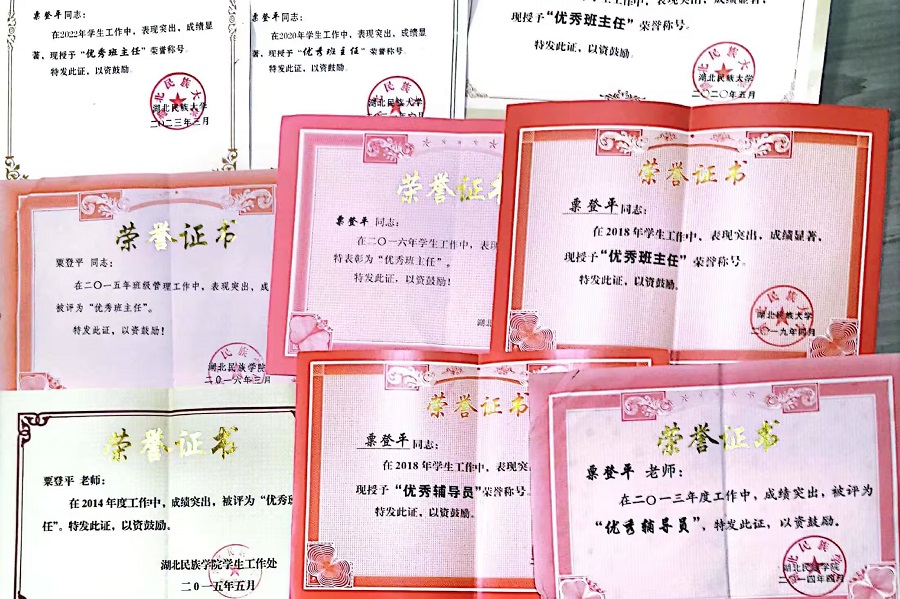 栗登平同志：
在2022年学生工作中，表现突出，成绩显
著，现授予“优秀班主任”荣誉称号。
特发此证，以资鼓励。
湖北民族大学
二〇二三年三月
栗登平同志：
在2020年学生工作中，表现突出，成绩显
著，现授予“优秀班主任”荣誉称号。
特发此证，以资鼓励。
湖北民族大学
现授予“优秀班主任”荣誉称号。
特发此证，以资鼓励。
湖北民族大学
二〇二〇年五月
荣誉证书
粟登平 同志：
在二〇一五年班级管理工作中，表现突出，成
被评为“优秀班主任”。
特发此证，以资鼓励！
湖北民族学院
二〇一六年三月
荣誉证书
栗登平 同志：
在二〇一六年学生工作中，表现
特表彰为“优秀班主任”。
特发此证，以资鼓励！
湖北
荣誉证书
栗登平同志：
在2018年学生工作中，表现突出，成绩显著，
现授予“优秀班主任”荣誉称号。
特发此证，以资鼓励。
湖北民族大学
二〇一九年四月
荣誉证书
粟登平 老师：
在2014年度工作中，成绩突出，被评为“优秀班
任”。特发此证，以资鼓励。
湖北民族学院学生工作处
二〇一五年五月
荣誉证书
栗登平同志：
在2018年学生工作中，表现突
现授予“优秀辅导员”荣誉称号。
特发此证，以资鼓励。
荣誉证书
栗登平 老师：
在二〇一三年度工作中，成绩突出，被评为
“优秀辅导员”，特发此证，以资鼓励。
湖北民族学院
二〇一四年四月